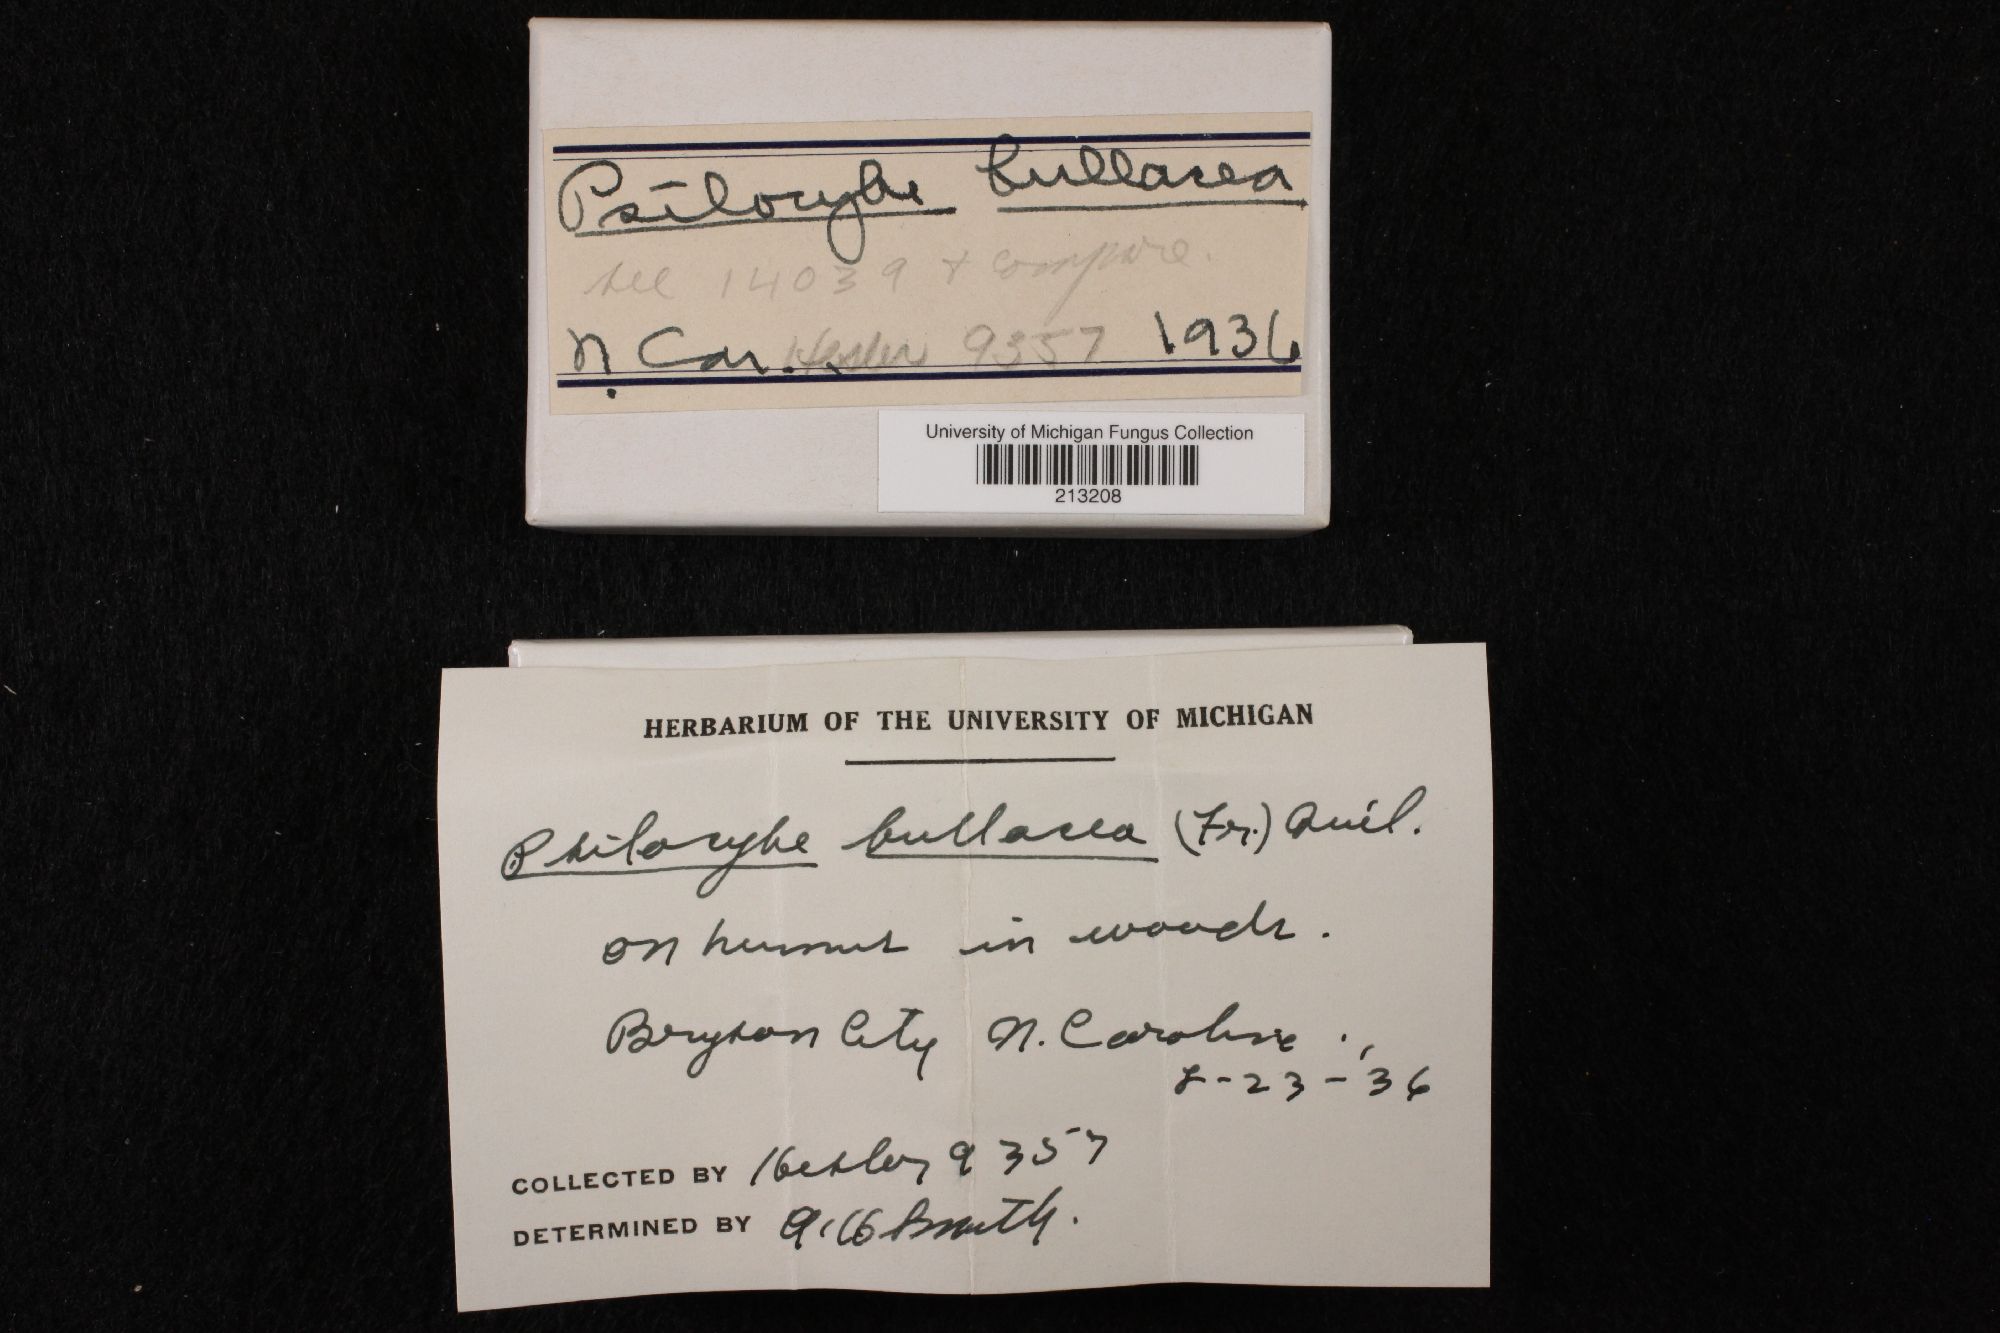 Psilocybe bullacea
see 14039 + compare.
N. Car. Hesler 9357 1936
University of Michigan Fungus Collection
213208
HERBARIUM OF THE UNIVERSITY OF MICHIGAN
Psilocybe bullacea (Fr.) Quél.
on humus in woods.
Bryson City N. Carolina.,
8-23-'36
COLLECTED BY Hesler 9357
DETERMINED BY A.H. Smith.